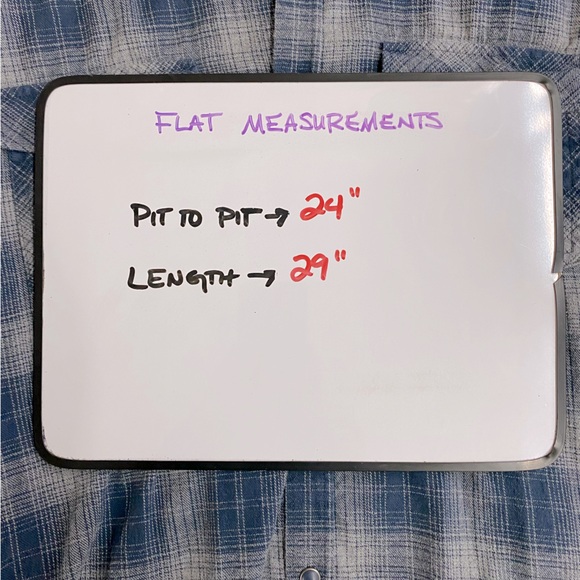 FLAT MEASUREMENTS
PIT TO PIT → 24"
LENGTH → 29"